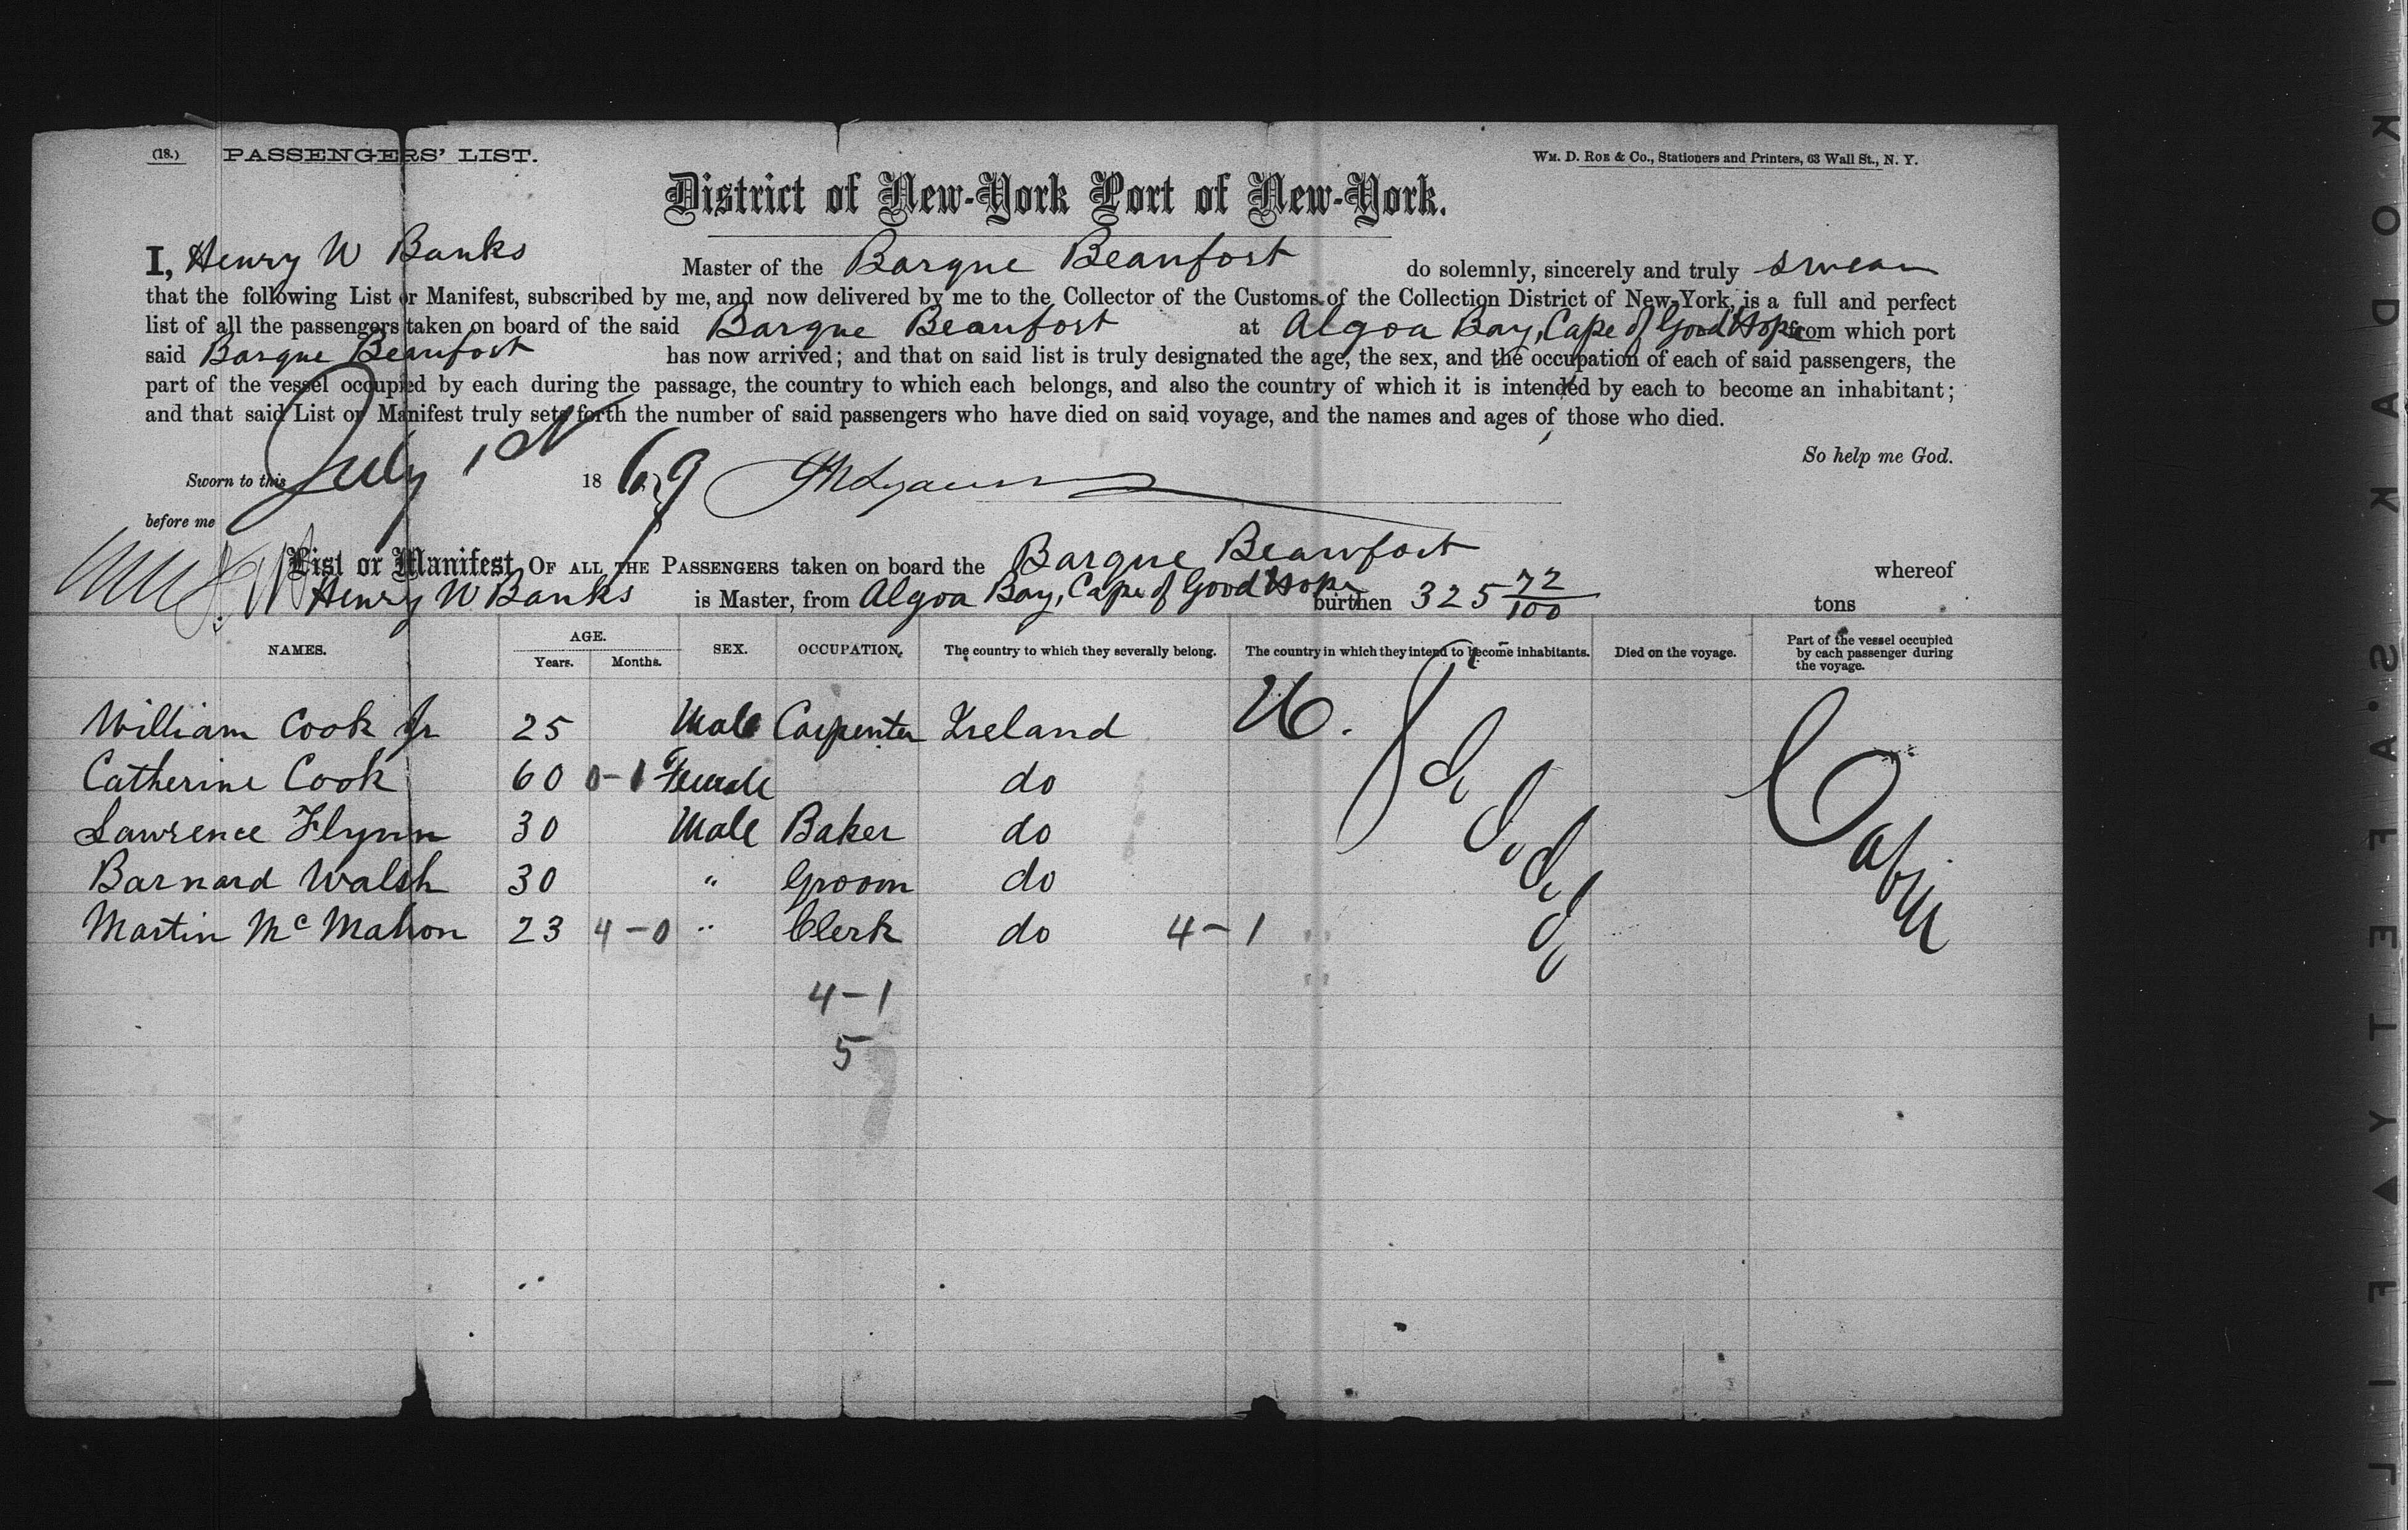 (18.) PASSENGERS' LIST.
WM. D. ROE & Co., Stationers and Printers, 63 Wall St., N. Y.
District of New-York Port of New-York.
I, Henry W Banks Master of the Barque Beaufort do solemnly, sincerely and truly swear
that the following List or Manifest, subscribed by me, and now delivered by me to the Collector of the Customs of the Collection District of New-York, is a full and perfect
list of all the passengers taken on board of the said Barque Beaufort at Algoa Bay, Cape of Good Hope from which port
said Barque Beaufort has now arrived; and that on said list is truly designated the age, the sex, and the occupation of each of said passengers, the
part of the vessel occupied by each during the passage, the country to which each belongs, and also the country of which it is intended by each to become an inhabitant;
and that said List or Manifest truly sets forth the number of said passengers who have died on said voyage, and the names and ages of those who died.
So help me God.
Sworn to this July 1st 1869
before me
List or Manifest OF ALL THE PASSENGERS taken on board the Barque Beaufort whereof
Henry W Banks is Master, from Algoa Bay, Cape of Good Hope burthen 325 72/100 tons
NAMES. AGE. Years. Months. SEX. OCCUPATION. The country to which they severally belong. The country in which they intend to become inhabitants. Died on the voyage. Part of the vessel occupied by each passenger during the voyage.
William Cook Jr 25 Male Carpenter Ireland U. S.
Catherine Cook 60 0-1 Female do do
Lawrence Flynn 30 Male Baker do do
Barnard Walsh 30 " Groom do do
Martin McMahon 23 4-0 " Clerk do 4-1 do
Cabin
4-1
5
KODAK S.A.FETY ▲ FIL